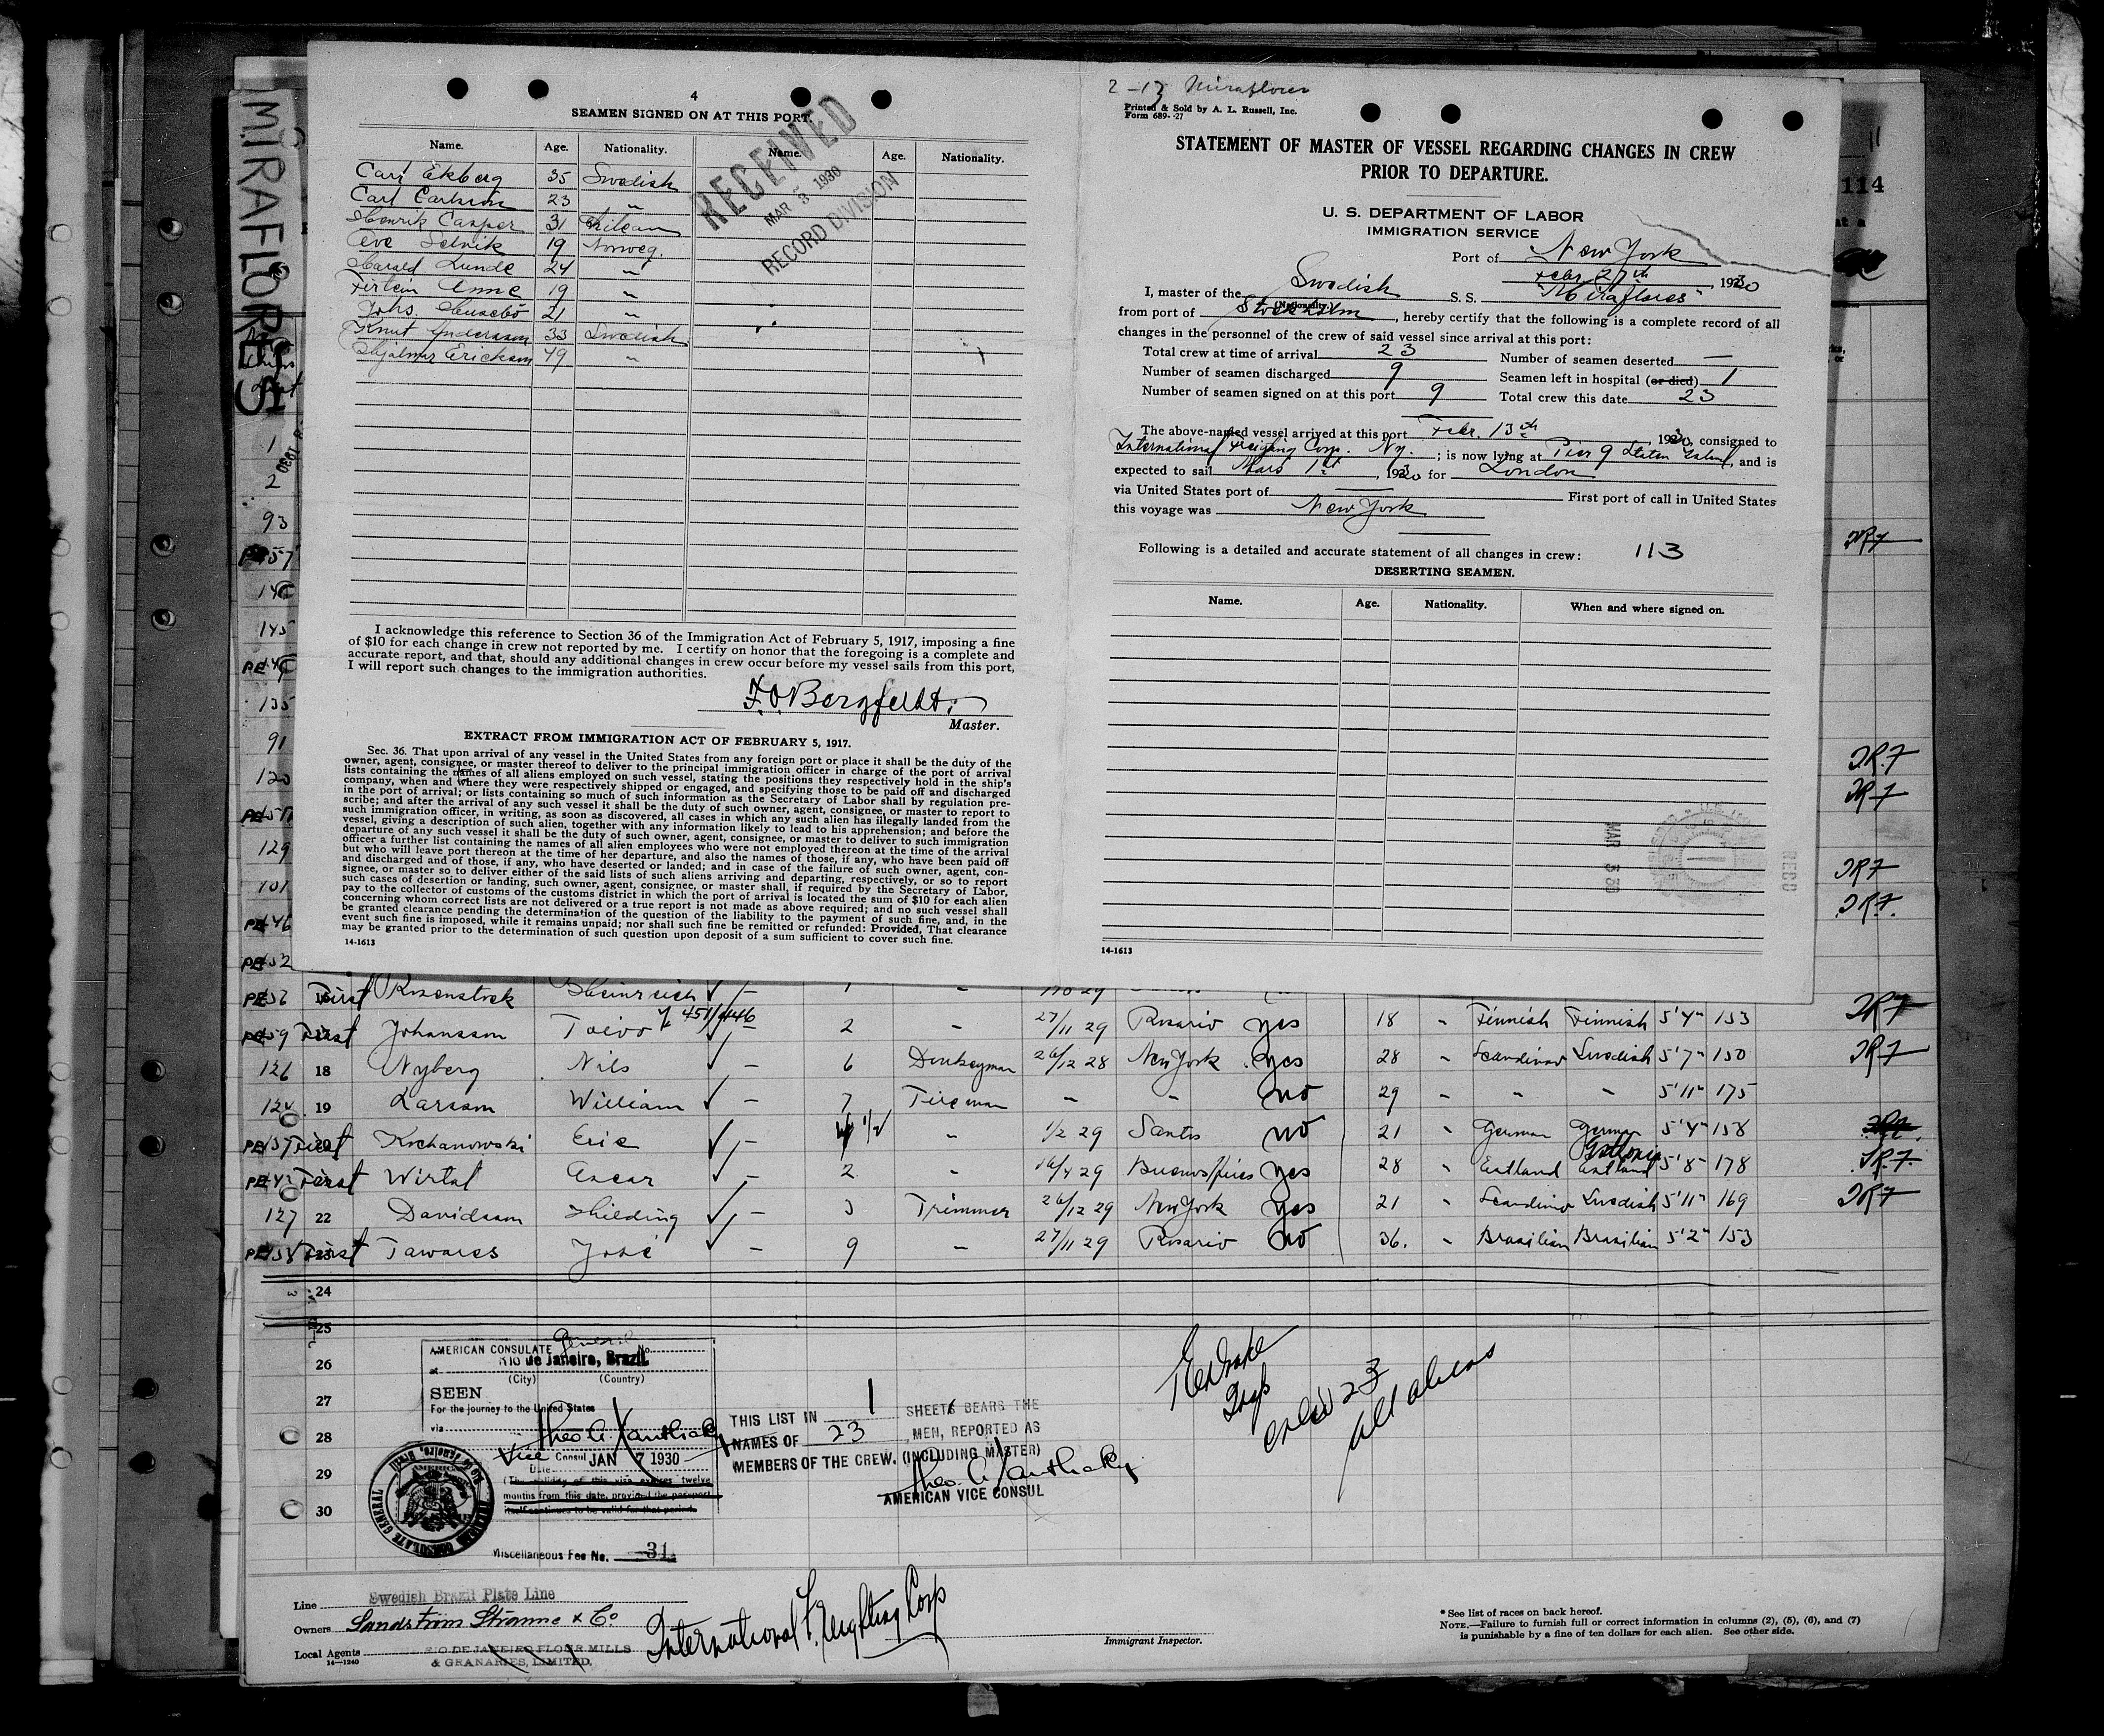 MIRAFLORES
4
SEAMEN SIGNED ON AT THIS PORT.
Name. Age. Nationality. Name. Age. Nationality.
Carl Ekberg 35 Swedish
Carl Carlson 23 "
Henrik Casper 31
19 Norweg.
Harald Lunde 24 "
19 "
Johs. 21 "
Knut Andersson 33 Swedish
Hjalmar Ericksson 49 "
RECEIVED
MAR 3 1930
RECORD DIVISION
I acknowledge this reference to Section 36 of the Immigration Act of February 5, 1917, imposing a fine
of $10 for each change in crew not reported by me. I certify on honor that the foregoing is a complete and
accurate report, and that, should any additional changes in crew occur before my vessel sails from this port,
I will report such changes to the immigration authorities.
F.O. Bergfeldt.
Master.
EXTRACT FROM IMMIGRATION ACT OF FEBRUARY 5, 1917.
Sec. 36. That upon arrival of any vessel in the United States from any foreign port or place it shall be the duty of the
owner, agent, consignee, or master thereof to deliver to the principal immigration officer in charge of the port of arrival
lists containing the names of all aliens employed on such vessel, stating the positions they respectively hold in the ship's
company, when and where they were respectively shipped or engaged, and specifying those to be paid off and discharged
in the port of arrival; or lists containing so much of such information as the Secretary of Labor shall by regulation pre-
scribe; and after the arrival of any such vessel it shall be the duty of such owner, agent, consignee, or master to report to
such immigration officer, in writing, as soon as discovered, all cases in which any such alien has illegally landed from the
vessel, giving a description of such alien, together with any information likely to lead to his apprehension; and before the
departure of any such vessel it shall be the duty of such owner, agent, consignee, or master to deliver to such immigration
officer a further list containing the names of all alien employees who were not employed thereon at the time of the arrival
but who will leave port thereon at the time of her departure, and also the names of those, if any, who have been paid off
and discharged and of those, if any, who have deserted or landed; and in case of the failure of such owner, agent, con-
signee, or master so to deliver either of the said lists of such aliens arriving and departing, respectively, or so to report
such cases of desertion or landing, such owner, agent, consignee, or master shall, if required by the Secretary of Labor,
pay to the collector of customs of the customs district in which the port of arrival is located the sum of $10 for each alien
concerning whom correct lists are not delivered or a true report is not made as above required; and no such vessel shall
be granted clearance pending the determination of the question of the liability to the payment of such fine, and, in the
event such fine is imposed, while it remains unpaid; nor shall such fine be remitted or refunded: Provided, That clearance
may be granted prior to the determination of such question upon deposit of a sum sufficient to cover such fine.
14-1613
2-13 Miraflores
Printed & Sold by A. L. Russell, Inc.
Form 689- -27
STATEMENT OF MASTER OF VESSEL REGARDING CHANGES IN CREW
PRIOR TO DEPARTURE.
U. S. DEPARTMENT OF LABOR
IMMIGRATION SERVICE
Port of New York
Febr. 27th, 1930
I, master of the Swedish S. S. "Miraflores"
(Nationality.)
from port of Stockholm, hereby certify that the following is a complete record of all
changes in the personnel of the crew of said vessel since arrival at this port:
Total crew at time of arrival 23 Number of seamen deserted —
Number of seamen discharged 9 Seamen left in hospital (or died) 1
Number of seamen signed on at this port 9 Total crew this date 23
The above-named vessel arrived at this port Febr. 13th, 1930, consigned to
International Freighting Corp. Ny.; is now lying at Pier 9 Staten Island, and is
expected to sail Mars 1st, 1930 for London
via United States port of — First port of call in United States
this voyage was New York
Following is a detailed and accurate statement of all changes in crew: 113
DESERTING SEAMEN.
Name. Age. Nationality. When and where signed on.
MAR 3 30
14-1613
114
1
2
93
145
135
91
120
129
101
First Rosenstock Heinrich ✓ –
First Johansson Toivo ✓ – 2 " 27/11 29 Rosario yes 18 " Finnish Finnish 5'4" 153 IR7
126 18 Nyberg Nils ✓ – 6 Donkeyman 26/12 28 New York yes 28 " Scandinav Swedish 5'7" 150 IR7
19 Larsson William ✓ – 7 Fireman " " no 29 " " " 5'11" 175
First Kochanowski Eric ✓ – 1/2 " 1/2 29 Santos no 21 " German German 5'4" 158
First Wirtal Oscar ✓ – 2 " 16/4 29 Buenos Aires yes 28 " Eastland Eastland Esthonia 5'8" 178 IR7
127 22 Davidsson Hilding ✓ – 3 Trimmer 26/12 29 New York yes 21 " Scandinav Swedish 5'11" 169 IR7
First Tawares José ✓ – 9 " 27/11 29 Rosario no 36. " Brasilian Brasilian 5'2" 153
24
25
26
27
28
29
30
AMERICAN CONSULATE General No.
at Rio de Janeiro, Brazil.
(City) (Country)
SEEN
For the journey to the United States
via
Theo. A. Xanthaky
Vice Consul
Date JAN 7 1930
(The validity of this visa expires twelve
months from this date, provided the passport
itself continues to be valid for that period.
Miscellaneous Fee No. 31
THIS LIST IN 1 SHEET BEARS THE
NAMES OF 23 MEN, REPORTED AS
MEMBERS OF THE CREW. (INCLUDING MASTER)
Theo. A. Xanthaky
AMERICAN VICE CONSUL
Insp
crew 23
all aliens
Line Swedish Brazil Plate Line
Owners Sandström Stranne & Co.
Local Agents RIO DE JANEIRO FLOUR MILLS
& GRANARIES, LIMITED.
International Freighting Corp
14-1240
Immigrant Inspector.
* See list of races on back hereof.
NOTE.—Failure to furnish full or correct information in columns (2), (5), (6), and (7)
is punishable by a fine of ten dollars for each alien. See other side.